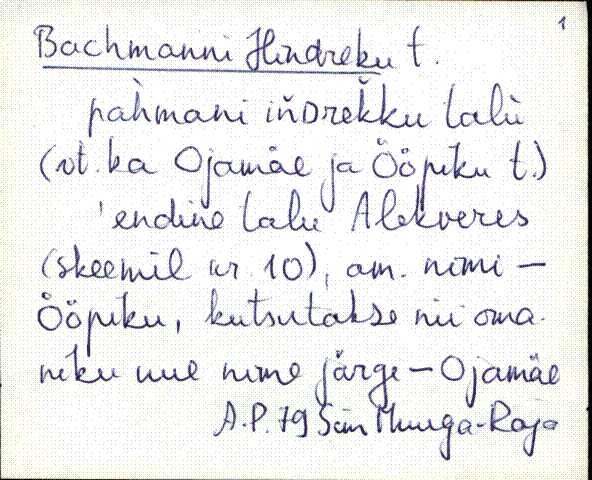 1
Bachmanni Hindreku t.
pàhmani iňDrek̆ku talù
(vt. ka Ojamäe ja Ööpiku t.)
'endine talu Alekveres
(skeemil nr. 10), am. nimi –
Ööpiku, kutsutakse nii oma-
niku uue nime järge – Ojamäe
A.P. 79 Murga-Raja